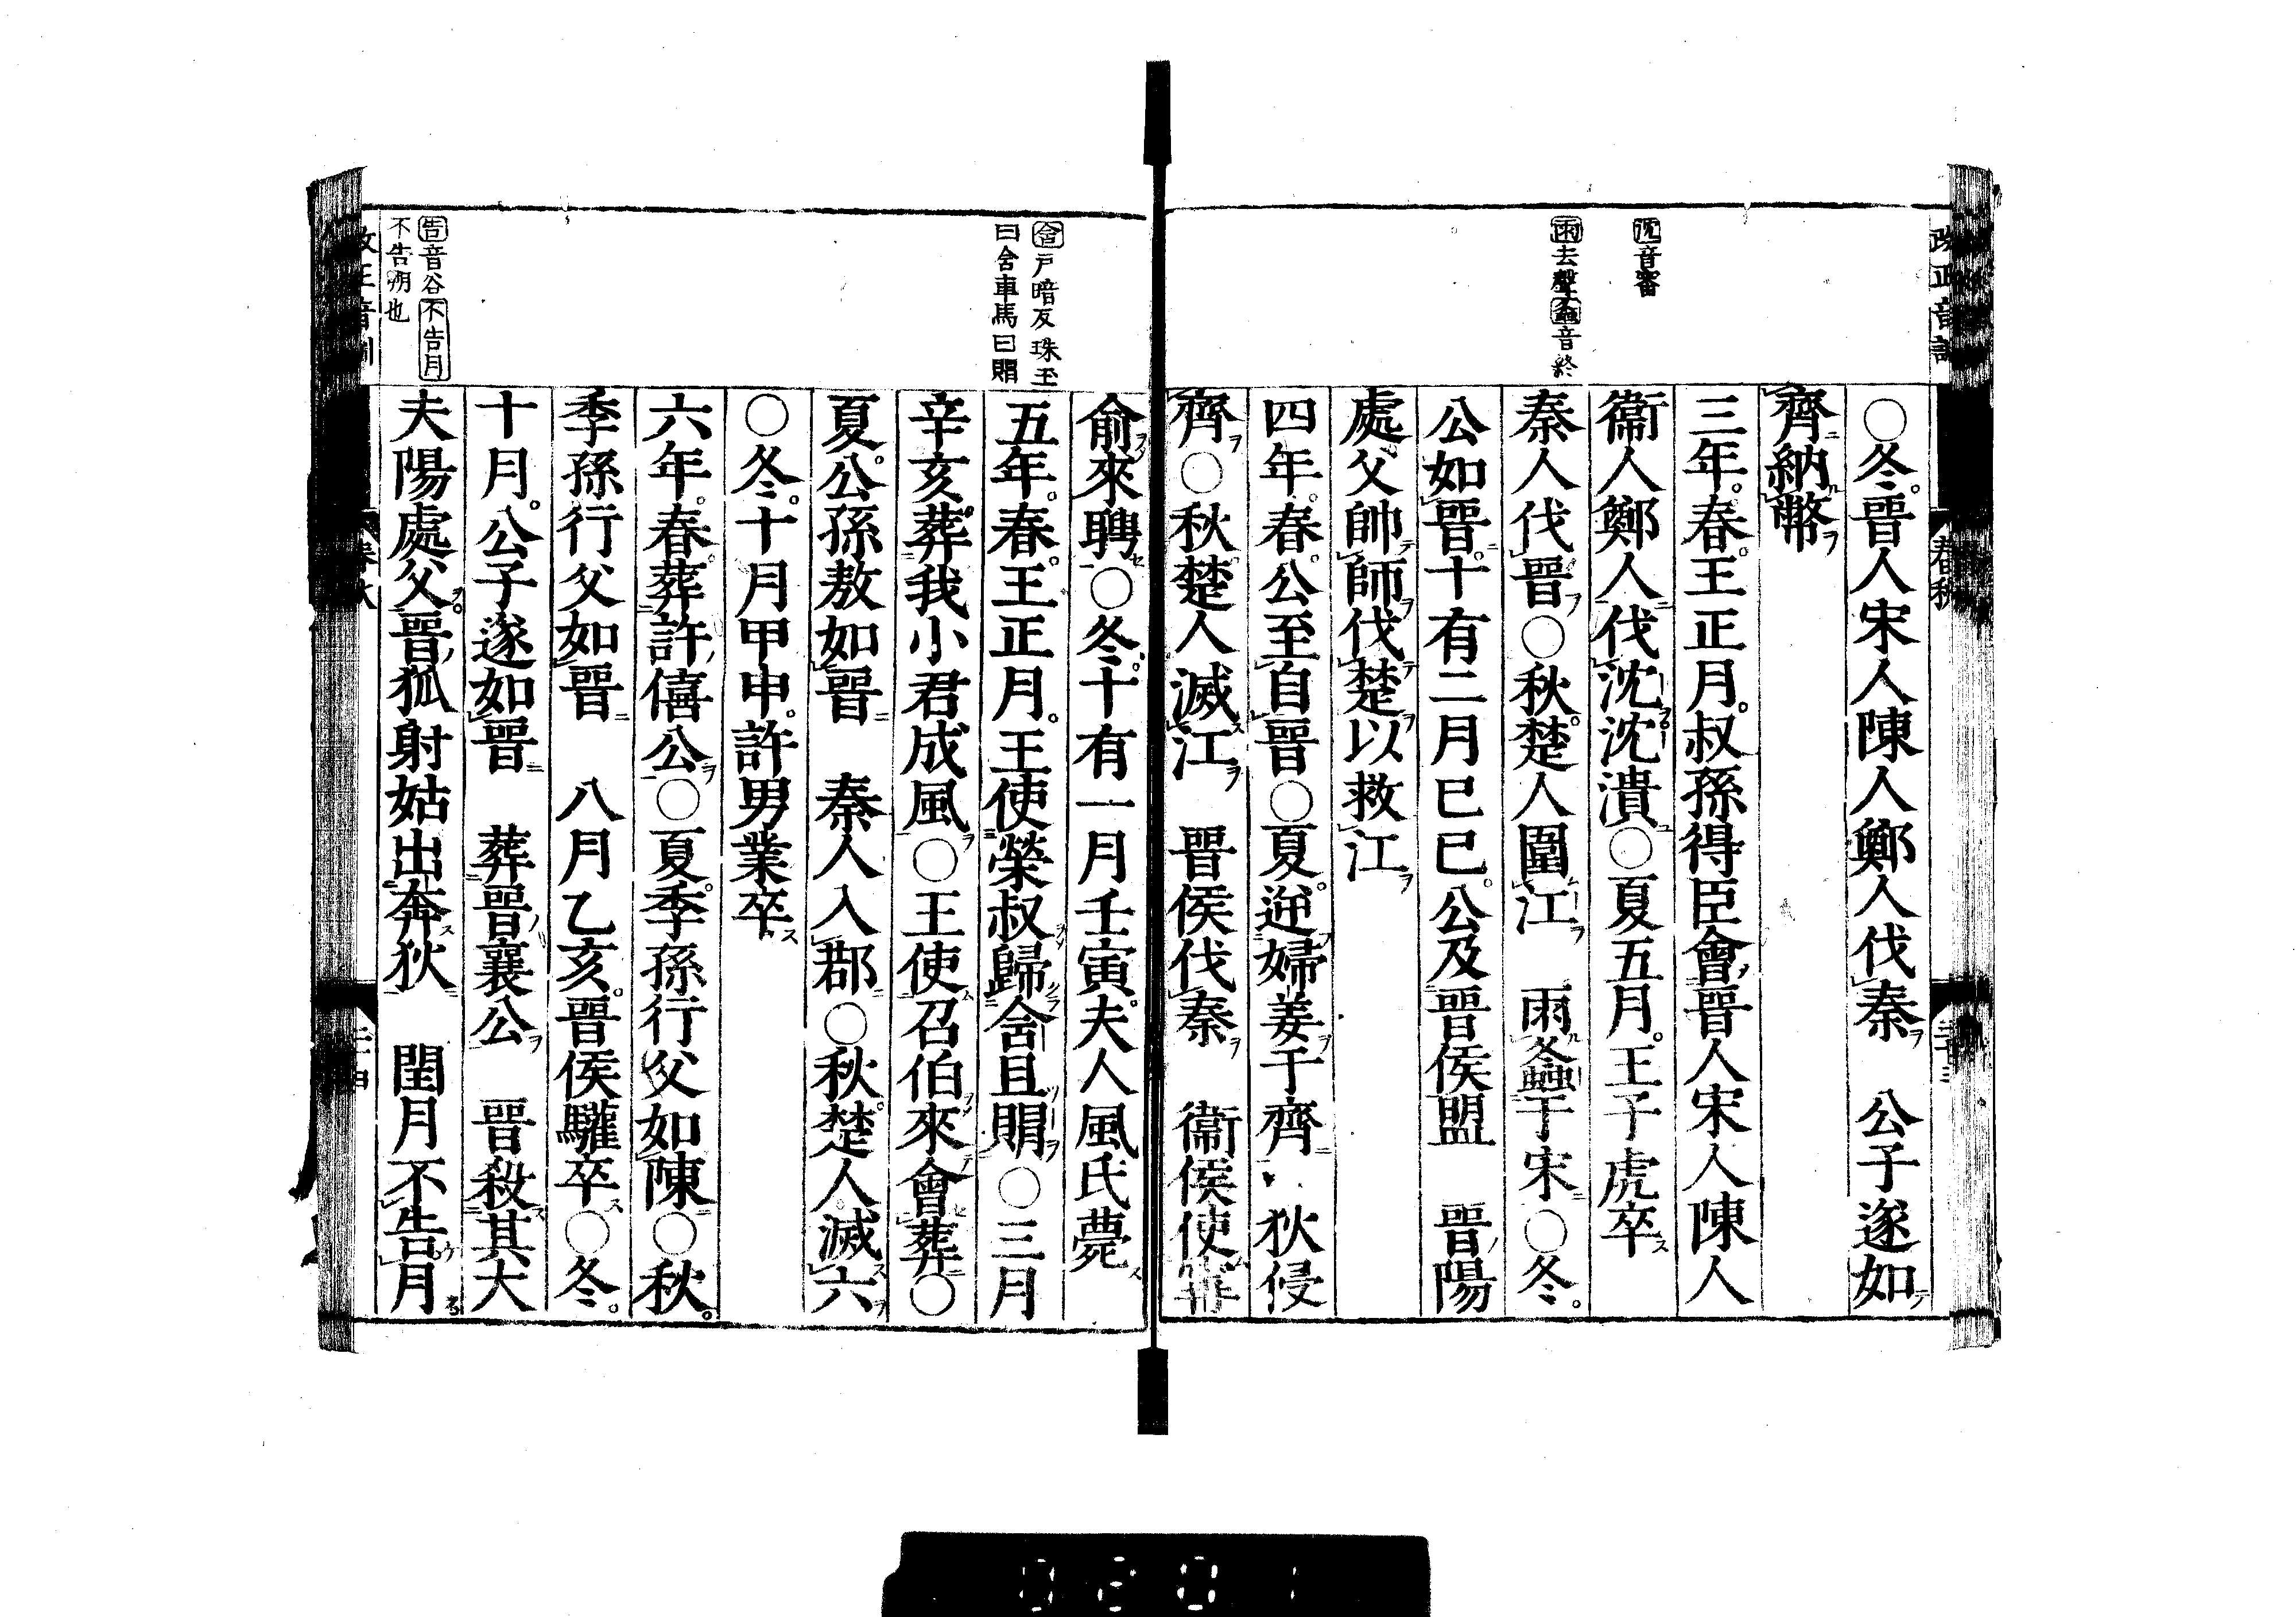 沈音審
雨去聲螽音終
○冬。晉人宋人陳人鄭人伐秦ヲ　公子遂如テ
齊ニ納ル幣ヲ
三年。春。王正月。叔孫得臣會晉人宋人陳人
衞人鄭人ニ伐沈ヲ沈潰ユ○夏五月。王子虎卒ス
秦人伐晉ヲ○秋。楚人圍ム江ヲ　雨ル螽于宋ニ○冬。
公如晉ニ。十有二月己巳。公及晉侯盟　晉ノ陽
處父帥テ師ヲ伐テ楚ヲ以救江ヲ
四年。春。公至自晉○夏。逆婦姜ヲ于齊ニ　狄侵
齊ヲ○秋。楚人滅ス江ヲ　晉侯伐秦ヲ　衞侯使甯
含戸暗反珠玉
曰含車馬曰賵
告音谷不告月
不告朔也
俞ヲ來聘セ○冬。十有一月壬寅。夫人風氏薨ス
五年。春。王正月。王使榮叔歸含且賵○三月
辛亥。葬我小君成風ヲ○王使ム召伯來テ會セ葬ニ○
夏。公孫敖如晉ニ　秦人入鄀ニ○秋。楚人滅ス六ヲ
○冬。十月甲申。許男業卒ス
六年。春。葬許ノ僖公ヲ○夏。季孫行父如陳ニ○秋。
季孫行父如晉ニ　八月乙亥。晉侯驩卒ス○冬。
十月。公子遂如晉ニ　葬晉ノ襄公ヲ　晉殺ス其大
夫陽處父ヲ。晉ノ狐射姑出奔ス狄ニ　閏月不告ケ月
春秋